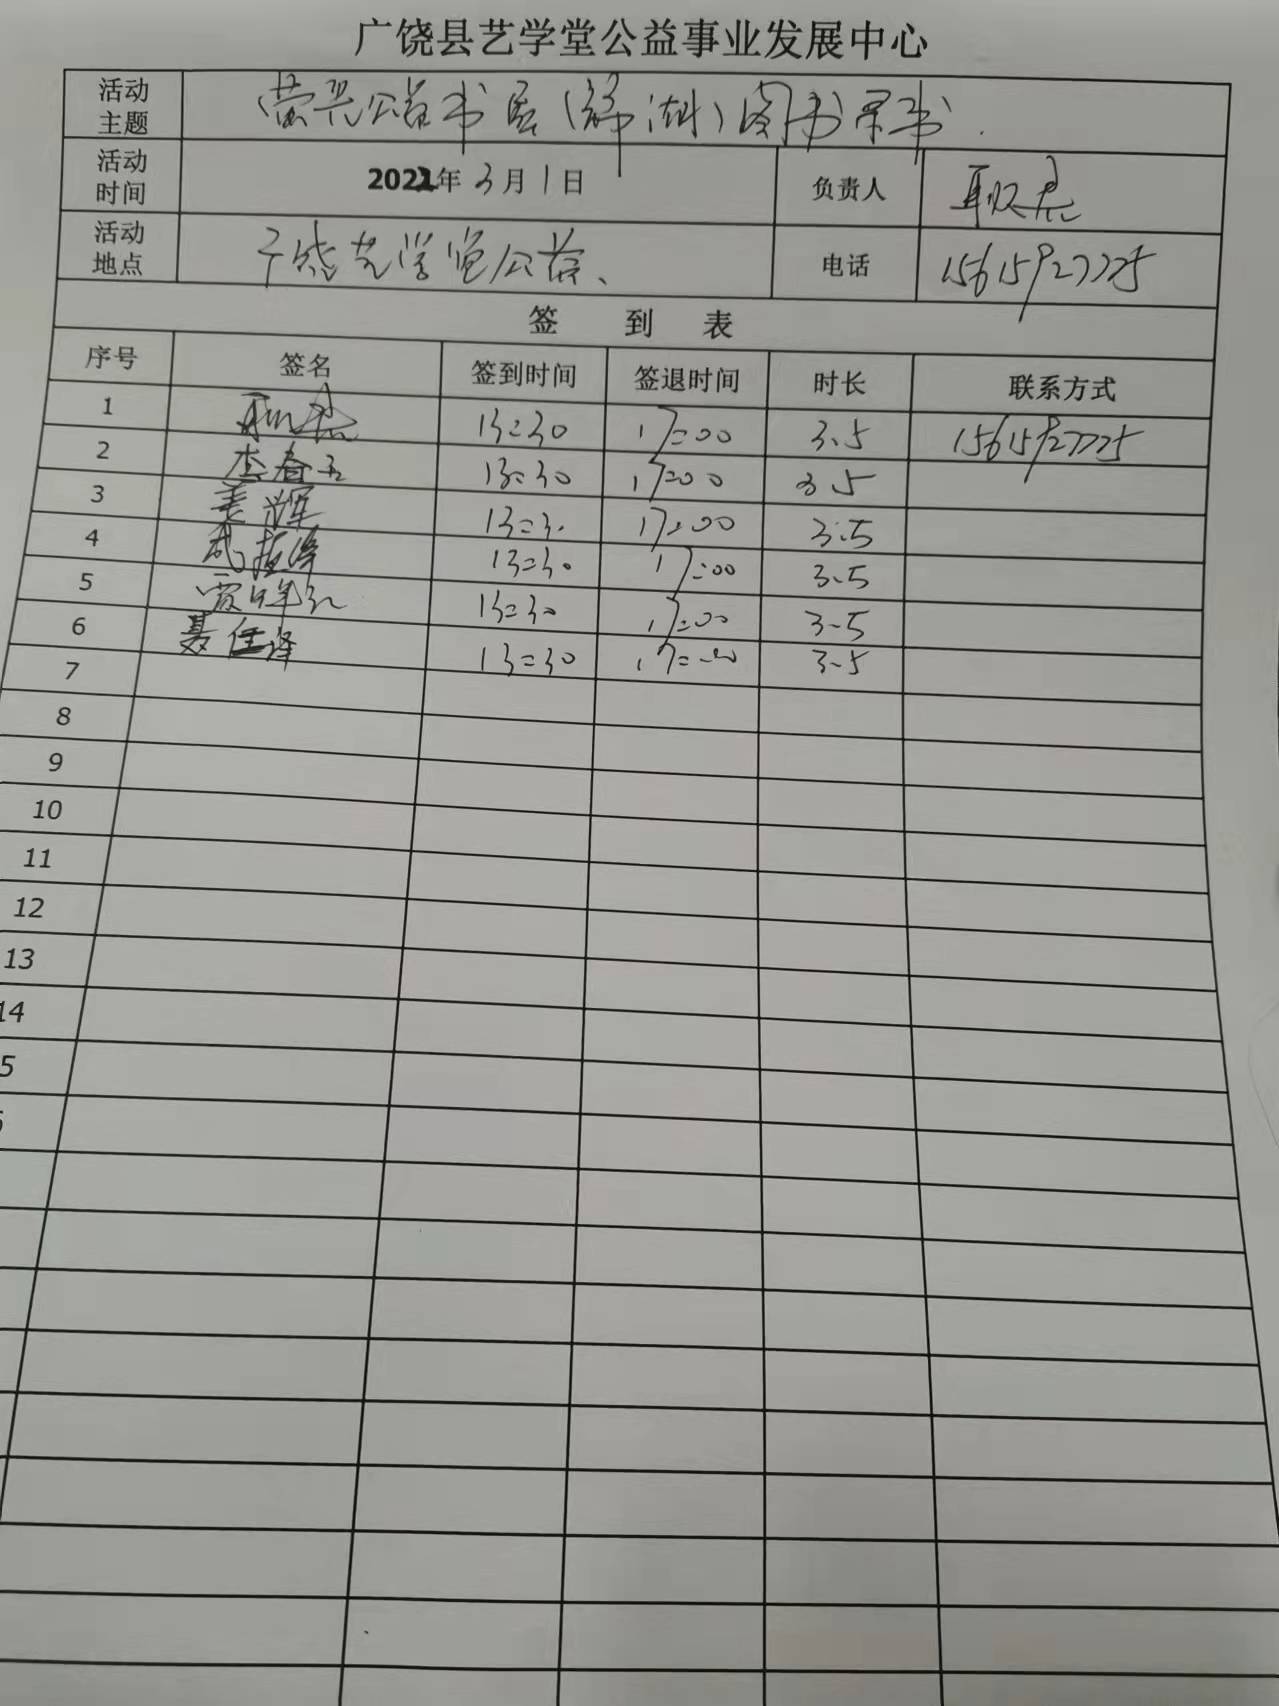 广饶县艺学堂公益事业发展中心
活动主题 公益书屋(湖)图书
活动时间 2022年3月1日 负责人
活动地点 广饶艺学堂公益、 电话 15615927725
签 到 表
序号 签名 签到时间 签退时间 时长 联系方式
1 13:30 17:00 3.5 15615927725
2 李春玉 13:30 17:00 3.5
3 姜辉 13:30 17:00 3.5
4 13:30 17:00 3.5
5 13:30 17:00 3.5
6 聂佳泽 13:30 17:00 3.5
7
8
9
10
11
12
13
14
5